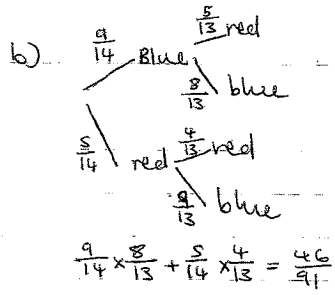 b)
9/14 Blue 5/13 red
8/13 blue
5/14 red 4/13 red
9/13 blue
9/14 × 8/13 + 5/14 × 4/13 = 46/91